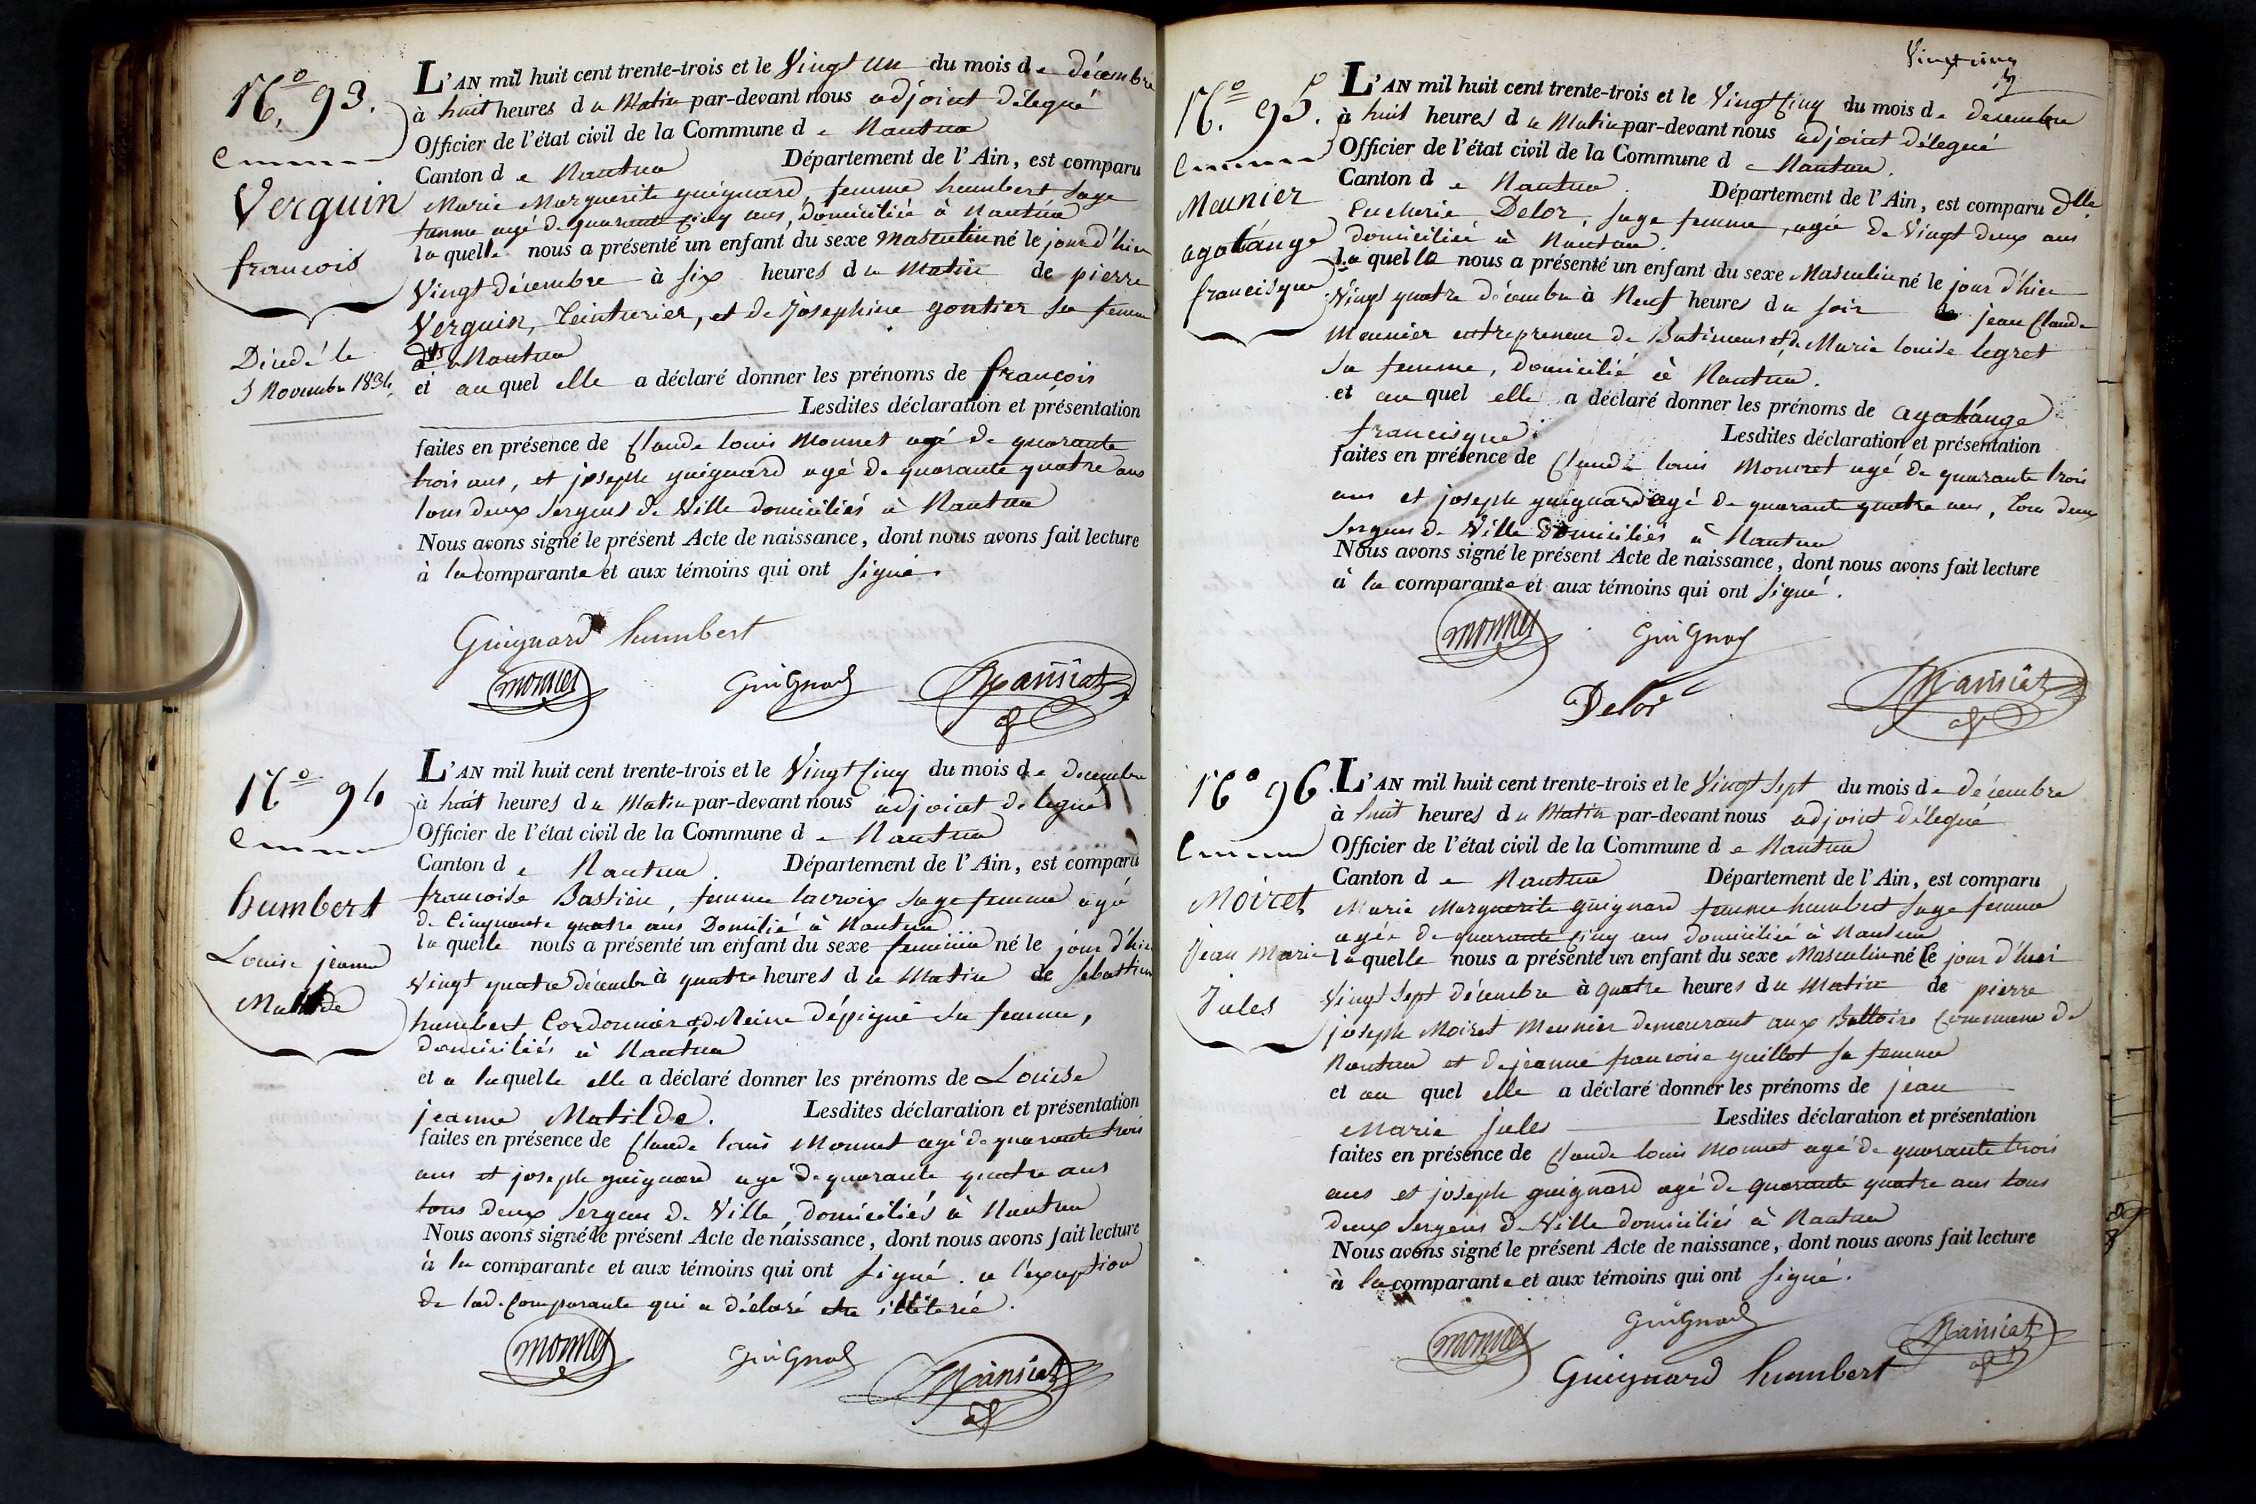 N.º 93.
Verguin
françois
Décédé le
3 Novembre 1834
L'AN mil huit cent trente-trois et le Vingt un du mois de décembre
à huit heures du Matin par-devant nous adjoint délegué
Officier de l'état civil de la Commune de Nantua
Canton de Nantua Département de l'Ain, est comparu
Marie Marguerite guignard, femme humbert sage
femme agé de quarante cinq ans, domiciliée à Nantua
laquelle nous a présenté un enfant du sexe Masculin né le jour d'hier
Vingt décembre à six heures du Matin de pierre
Verguin, Teinturier, et de Josephine gontier sa femme
Nantua
et auquel elle a déclaré donner les prénoms de françois
Lesdites déclaration et présentation
faites en présence de Claude louis Monnet agé de quarante
trois ans, et joseph guignard agé de quarante quatre ans
tous deux sergens de Ville domiciliés à Nantua
Nous avons signé le présent Acte de naissance, dont nous avons fait lecture
à la comparante et aux témoins qui ont signé.
Guignard humbert
monnet Guignard
N.º 94
humbert
Louise jeanne
Matilde
L'AN mil huit cent trente-trois et le Vingt cinq du mois de decembre
à huit heures du Matin par-devant nous adjoint delegué
Officier de l'état civil de la Commune de Nantua
Canton de Nantua. Département de l'Ain, est comparu
françoise Bastien, femme lacroix sage femme agé
de Cinquante quatre ans Domilié à Nantua
laquelle nous a présenté un enfant du sexe feminin né le jour d'hier
Vingt quatre décembre à quatre heures du Matin de sebastien
humbert Cordonnier et de Reine dépigné sa femme,
domiciliés à Nantua
et a laquelle elle a déclaré donner les prénoms de Louise
jeanne Matilde. Lesdites déclaration et présentation
faites en présence de Claude louis Monnet agé de quarante trois
ans et joseph guignard agé de quarante quatre ans
tous deux sergens de Ville, domiciliés à Nantua
Nous avons signé le présent Acte de naissance, dont nous avons fait lecture
à la comparante et aux témoins qui ont signé. a l'exception
de lad. Comparante qui a déclaré etre illiterée.
monnet Guignard
Vingt cinq
N.º 95.
Meunier
agatánge
francisque
L'AN mil huit cent trente-trois et le Vingt Cinq du mois de decembre
à huit heures du Matin par-devant nous adjoint délegué
Officier de l'état civil de la Commune de Nantua.
Canton de Nantua. Département de l'Ain, est comparu dlle
Eucherie Delor, sage femme, agée de Vingt deux ans
domiciliée à Nantua.
laquelle nous a présenté un enfant du sexe Masculin né le jour d'hier
Vingt quatre décembre à Neuf heures du soir de jean Claude
Meunier entrepreneur de Batimens et de Marie louise legret
sa femme, domicilié à Nantua.
et auquel elle a déclaré donner les prénoms de agatánge
francisque. Lesdites déclaration et présentation
faites en présence de Claude louis Monnet agé de quarante trois
ans et joseph guignard agé de quarante quatre ans, tous deux
sergens de Ville Domiciliés à Nantua
Nous avons signé le présent Acte de naissance, dont nous avons fait lecture
à la comparante et aux témoins qui ont signé.
monnet Guignard
Delor
N.º 96.
Moiret
Jean Marie
Jules
L'AN mil huit cent trente-trois et le Vingt sept du mois de décembre
à huit heures du Matin par-devant nous adjoint délegué
Officier de l'état civil de la Commune de Nantua
Canton de Nantua Département de l'Ain, est comparu
Marie Marguerite guignard femme humbert sage femme
agée de quarante cinq ans domiciliée à Nantua
laquelle nous a présenté un enfant du sexe Masculin né le jour d'hui
Vingt sept décembre à quatre heures du Matin de pierre
joseph Moiret Meunier demeurant aux Battoirs Commune de
Nantua et de jeanne francoise guillot sa femme
et auquel elle a déclaré donner les prénoms de jean
Marie jules Lesdites déclaration et présentation
faites en présence de Claude louis Monnet agé de quarante trois
ans et joseph guignard agé de quarante quatre ans tous
deux sergens de Ville domiciliés à Nantua
Nous avons signé le présent Acte de naissance, dont nous avons fait lecture
à la comparante et aux témoins qui ont signé.
monnet Guignard
Guignard humbert